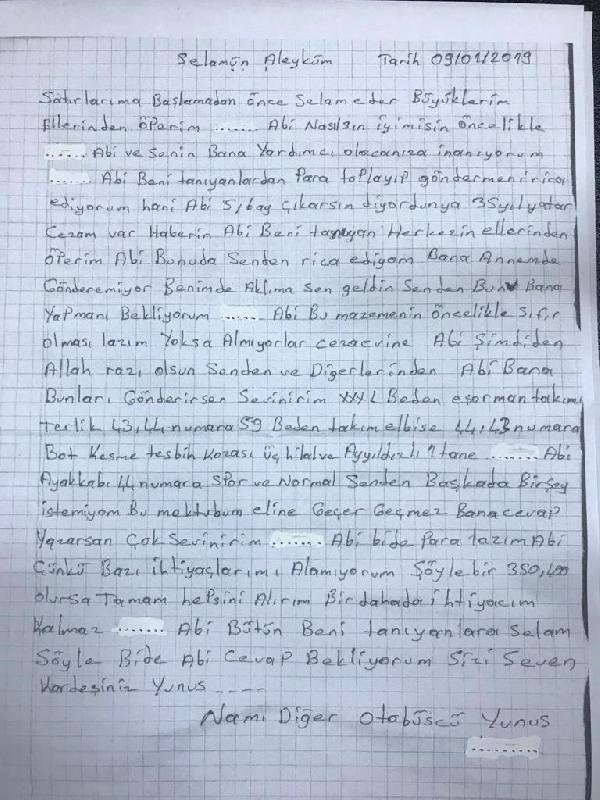 Selamün Aleyküm Tarih 09/01/2019
Satırlarıma Başlamadan önce Selam eder Büyüklerin
Ellerinden öperim ....... Abi Nasılsın iyimisin öncelikle
....... Abi ve Senin Bana Yardımcı olacanıza inanıyorum
....... Abi Beni tanıyanlardan Para toplayıp göndermeni rica
ediyorum hani Abi 5,6ay Çıkarsın diyordunya 35yıl yatar
Cezam var Haberin Abi Beni tanıyan Herkezin ellerinden
öperim Abi Bunuda Senden rica ediyom Bana Annemde
Gönderemiyor Benimde Aklıma Sen geldin Senden Bunu Bana
Yapmanı Bekliyorum ....... Abi Bu mazemenin öncelikle Sıfır
olması lazım Yoksa Almıyorlar cezaevine Abi Şimdiden
Allah razı olsun Senden ve Diğerlerinden Abi Bana
Bunları Gönderirsen Sevinirim XXXL Beden eşorman takımı
Terlik 43,44 numara 59 Beden takım elbise 44,43 numara
Bot Kesme tesbih Kozası üç hilal ve Ayyıldızlı 1 tane ....... Abi
Ayakkabı 44 numara Spor ve Normal Senden Başkada Birşey
istemiyom Bu mektubum eline Geçer Geçmez Bana cevap
Yazarsan Çok Sevinirim ....... Abi bide Para lazım Abi
Çünkü Bazı ihtiyaçlarımı Alamıyorum Şöyle bir 350,400
olursa Tamam hepsini Alırım Bir dahada ihtiyacım
kalmaz ....... Abi Bütün Beni tanıyanlara Selam
Söyle Bide Abi Cevap Bekliyorum Sizi Seven
Kardeşiniz Yunus ----
Namı Diğer Otobüscü Yunus
.........